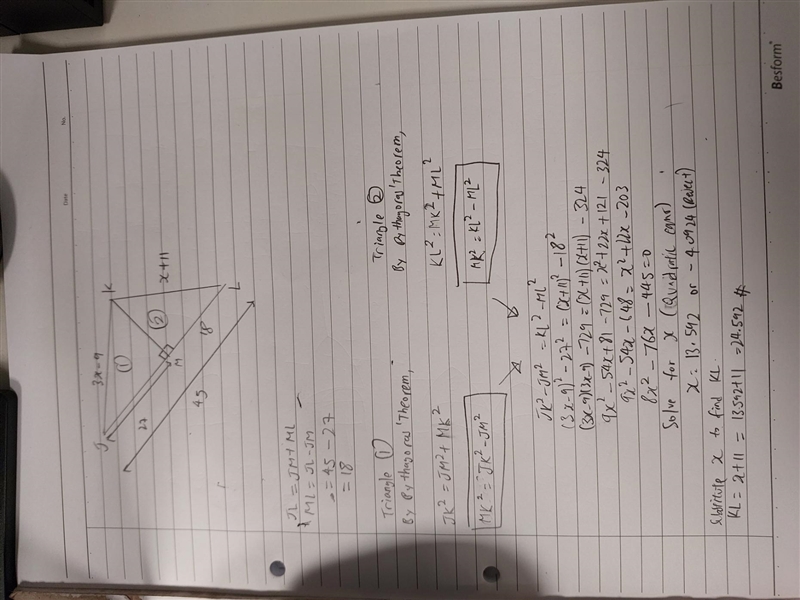 No.
Date
J
3x-9
K
(1)
(2)
x+11
27
M
18
L
45
JL = JM + ML
ML = JL - JM
= 45 - 27
= 18
Triangle (1)
By Pythagoras' Theorem,
JK² = JM² + MK²
MK² = JK² - JM²
Triangle (2)
By Pythagoras' Theorem,
KL² = MK² + ML²
MK² = KL² - ML²
JK² - JM² = KL² - ML²
(3x-9)² - 27² = (x+11)² - 18²
(3x-9)(3x-9) - 729 = (x+11)(x+11) - 324
9x² - 54x + 81 - 729 = x² + 22x + 121 - 324
9x² - 54x - 648 = x² + 22x - 203
8x² - 76x - 445 = 0
Solve for x (Quadratic eqns)
x = 13.592 or - 4.0924 (Reject)
Substitute x to find KL.
KL = x+11 = 13.592+11 = 24.592 #
Besform